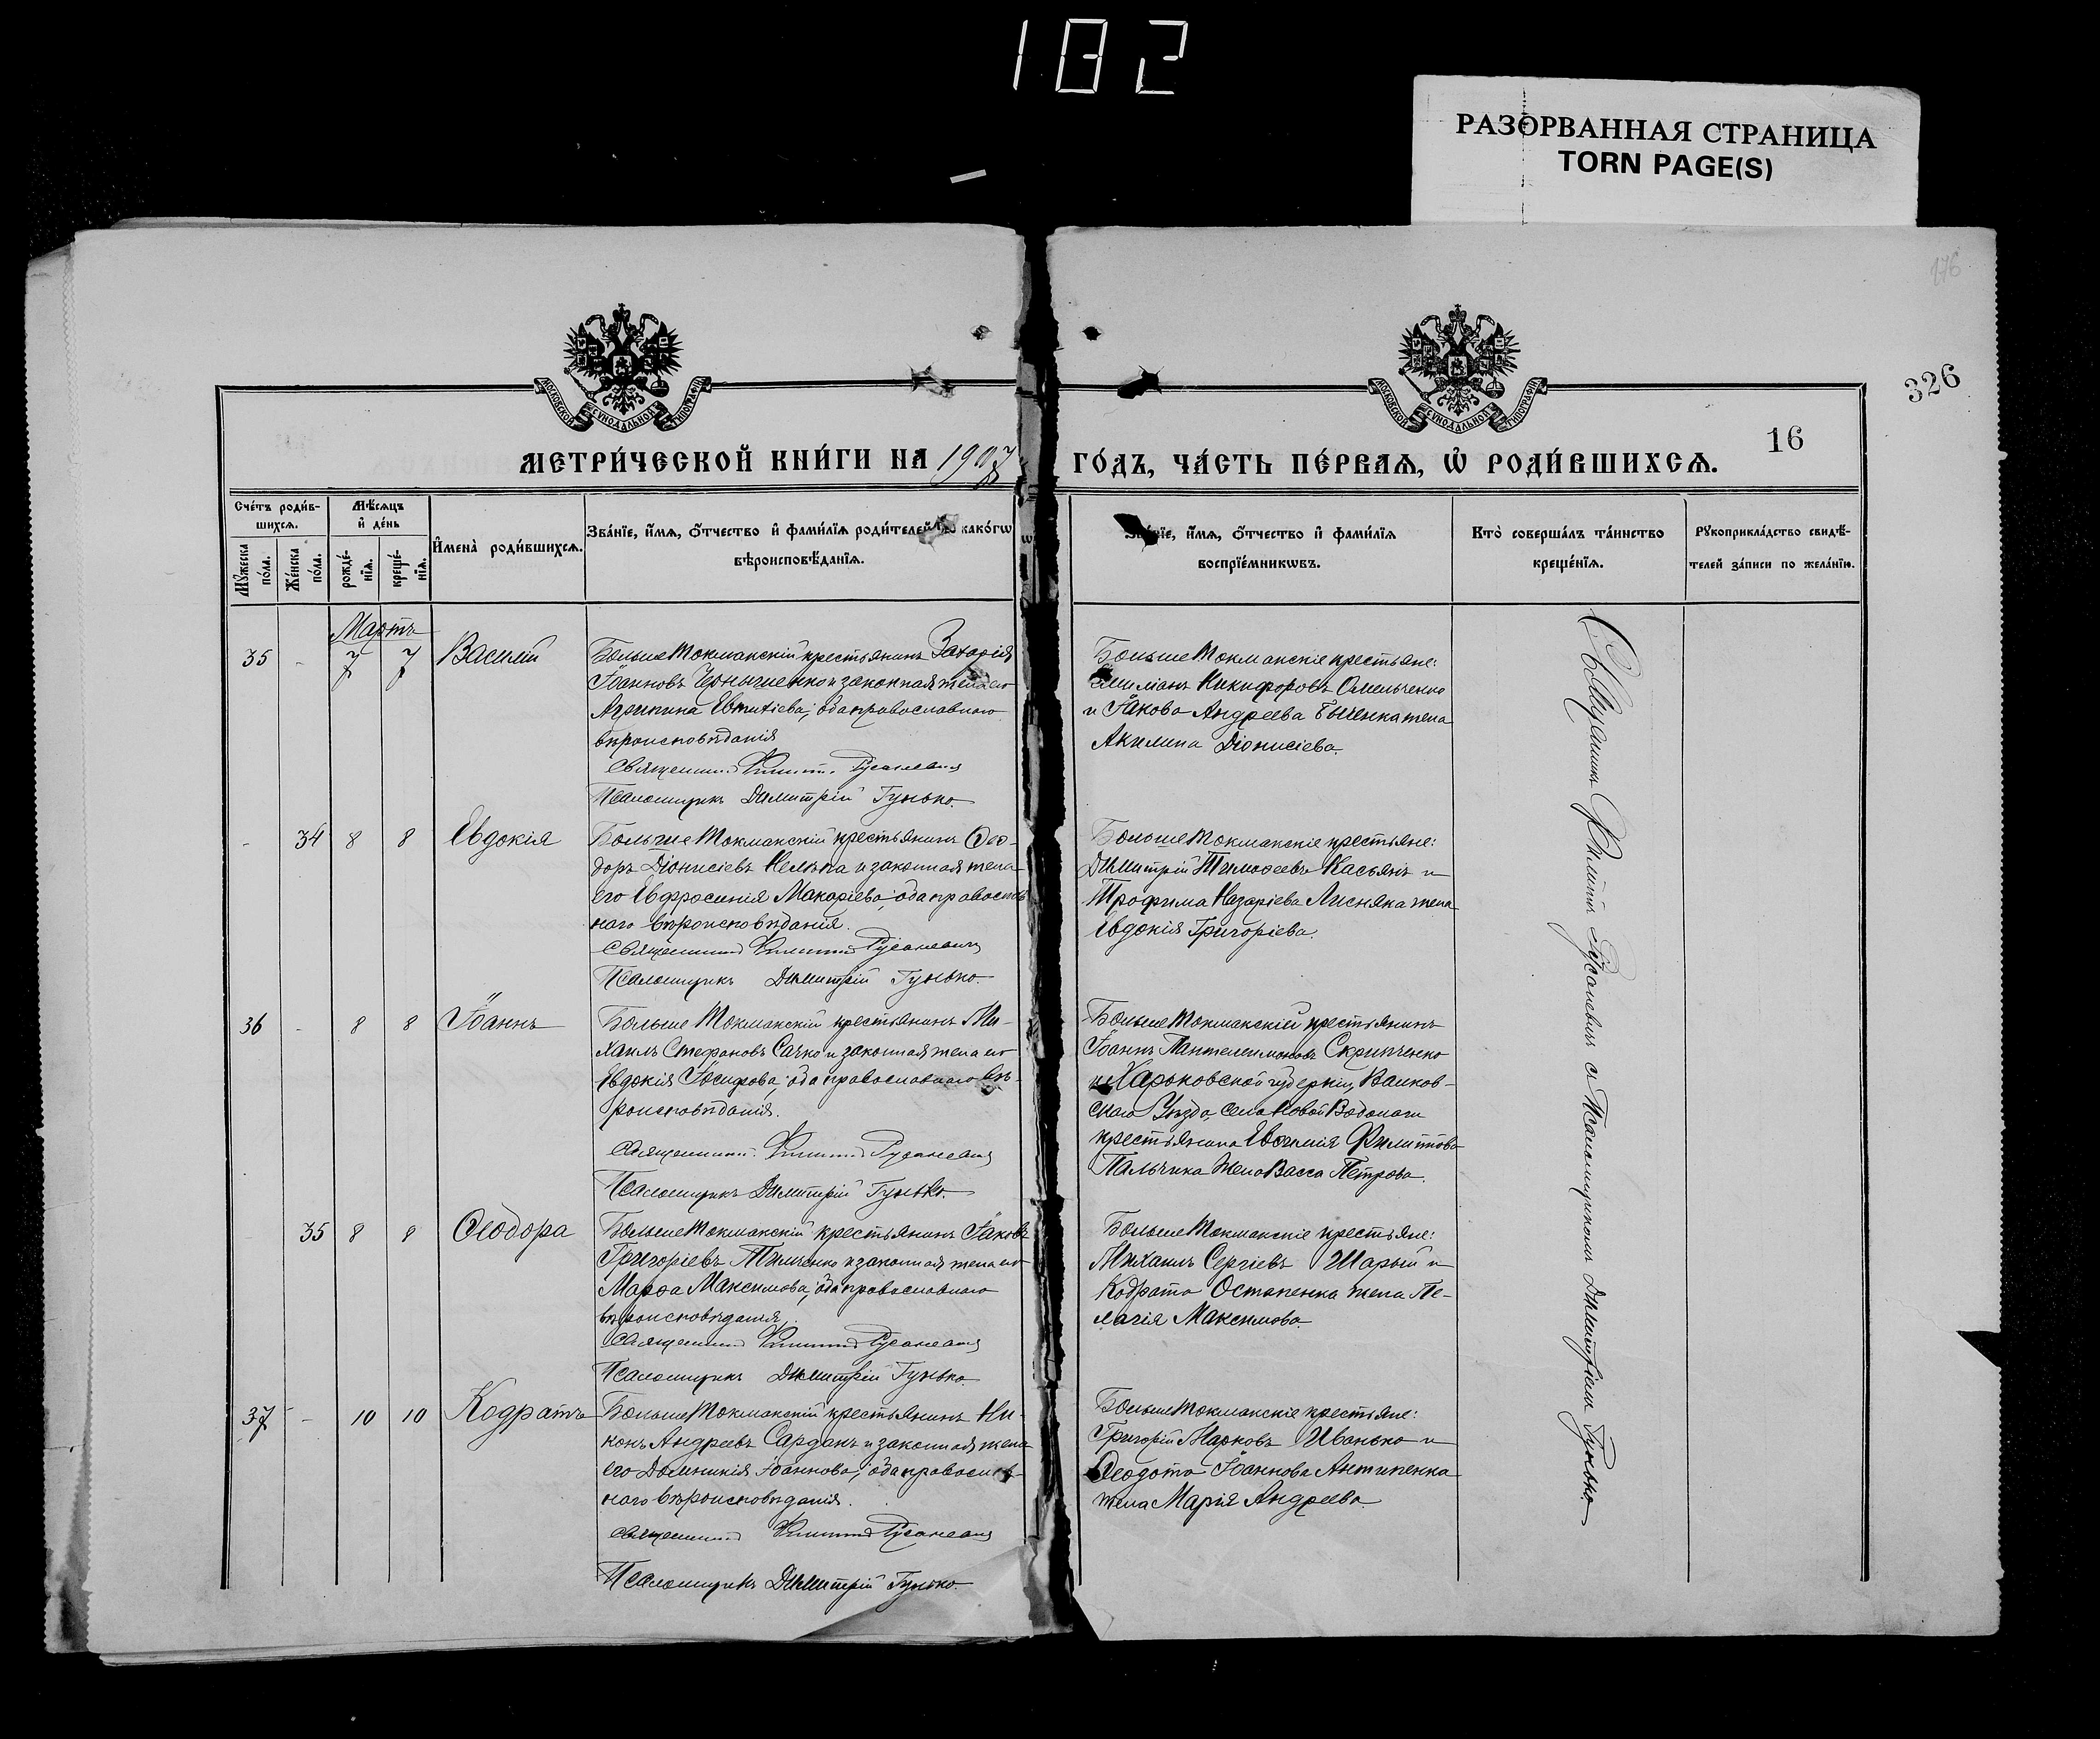 182
РАЗОРВАННАЯ СТРАНИЦА
TORN PAGE(S)
176
326
16
МОСКОВСКОЙ СѴНОДАЛЬНОЙ ТИПОГРАФІИ
МОСКОВСКОЙ СѴНОДАЛЬНОЙ ТИПОГРАФІИ
МЕТРИ́ЧЕСКОЙ КНИ́ГИ НА 1907
ГО́ДЪ, ЧА́СТЬ ПЕ́РВАѦ, Ѡ҆ РОДИ́ВШИХСѦ.
Сче́тъ роди́в-
шихсѧ.
Мꙋ́жеска
по́ла.
Же́нска
по́ла.
Мѣ́сѧцъ
и҆ де́нь
рожде́-
нїѧ.
креще́-
нїѧ.
И҆мена̀ роди́вшихсѧ.
Зва́нїе, и҆́мѧ, ѻ҆́тчество и҆ фами́лїѧ роди́телей, како́гѡ
вѣроисповѣ́данїѧ.
Зва́нїе, и҆́мѧ, ѻ҆́тчество и҆ фами́лїѧ
воспрїе́мникѡвъ.
Кто̀ соверша́лъ та́инство
креще́нїѧ.
Рꙋкоприкла́дство свидѣ́-
телей за́писи по жела́нїю.
Мартъ
35 - 7 7 Василій
Больше Токмакскій крестьянинъ Захарія
Іоанновъ Чернышенко и законная жена его
Агрипина Евтихіева, оба православнаго
вѣроисповѣданія
Священникъ Филиппъ Русаневичъ
Псаломщикъ Димитрій Гунько.
Больше Токмакскіе крестьяне:
Никифоровъ Омельченко
и Іакова Андреева Быченка жена
Акилина Діонисіева.
- 34 8 8 Евдокія
Больше Токмакскій крестьянинъ Ѳео-
доръ Діонисіевъ Нелѣпа и законная жена
его Евфросинія Макаріева, оба православ-
наго вѣроисповѣданія.
Священникъ Филиппъ Русаневичъ
Псаломщикъ Димитрій Гунько.
Больше Токмакскіе крестьяне:
Димитрій Тимоѳеевъ Касьянъ и
Трофима Назаріева Лисняка жена
Евдокія Григоріева.
36 - 8 8 Іоаннъ
Больше Токмакскій крестьянинъ Ми-
хаилъ Стефановъ Сачко и законная жена его
Евдокія Іосифова, оба православнаго вѣ-
роисповѣданія.
Священникъ Филиппъ Русаневичъ
Псаломщикъ Димитрій Гунько.
Больше Токмакскій крестьянинъ
Іоаннъ Пантелеимоновъ Скрипченко
и Харьковской губерніи, Валков-
скаго уѣзда, села Новой Водолаги
крестьянина Евѳимія Филиппова
Пальчика жена Васса Петрова.
35 8 8 Ѳеодора
Больше Токмакскій крестьянинъ Іаковъ
Григоріевъ Тимченко и законная жена его
Марѳа Максимова, оба православнаго
вѣроисповѣданія.
Священникъ Филиппъ Русаневичъ
Псаломщикъ Димитрій Гунько.
Больше Токмакскіе крестьяне:
Михаилъ Сергіевъ Шарый и
Кодрата Остапенка жена Пе-
лагія Максимова.
37 - 10 10 Кодратъ
Больше Токмакскій крестьянинъ Ни-
конъ Андреевъ Сарданъ и законная жена
его Домникія Іоаннова, оба православ-
наго вѣроисповѣданія.
Священникъ Филиппъ Русаневичъ
Псаломщикъ Димитрій Гунько.
Больше Токмакскіе крестьяне:
Григорій Марковъ Иванько и
Ѳеодота Іоаннова Антипенка
жена Марія Андреева
Священникъ Филиппъ Русаневичъ съ Псаломщикомъ Димитріемъ Гунько.